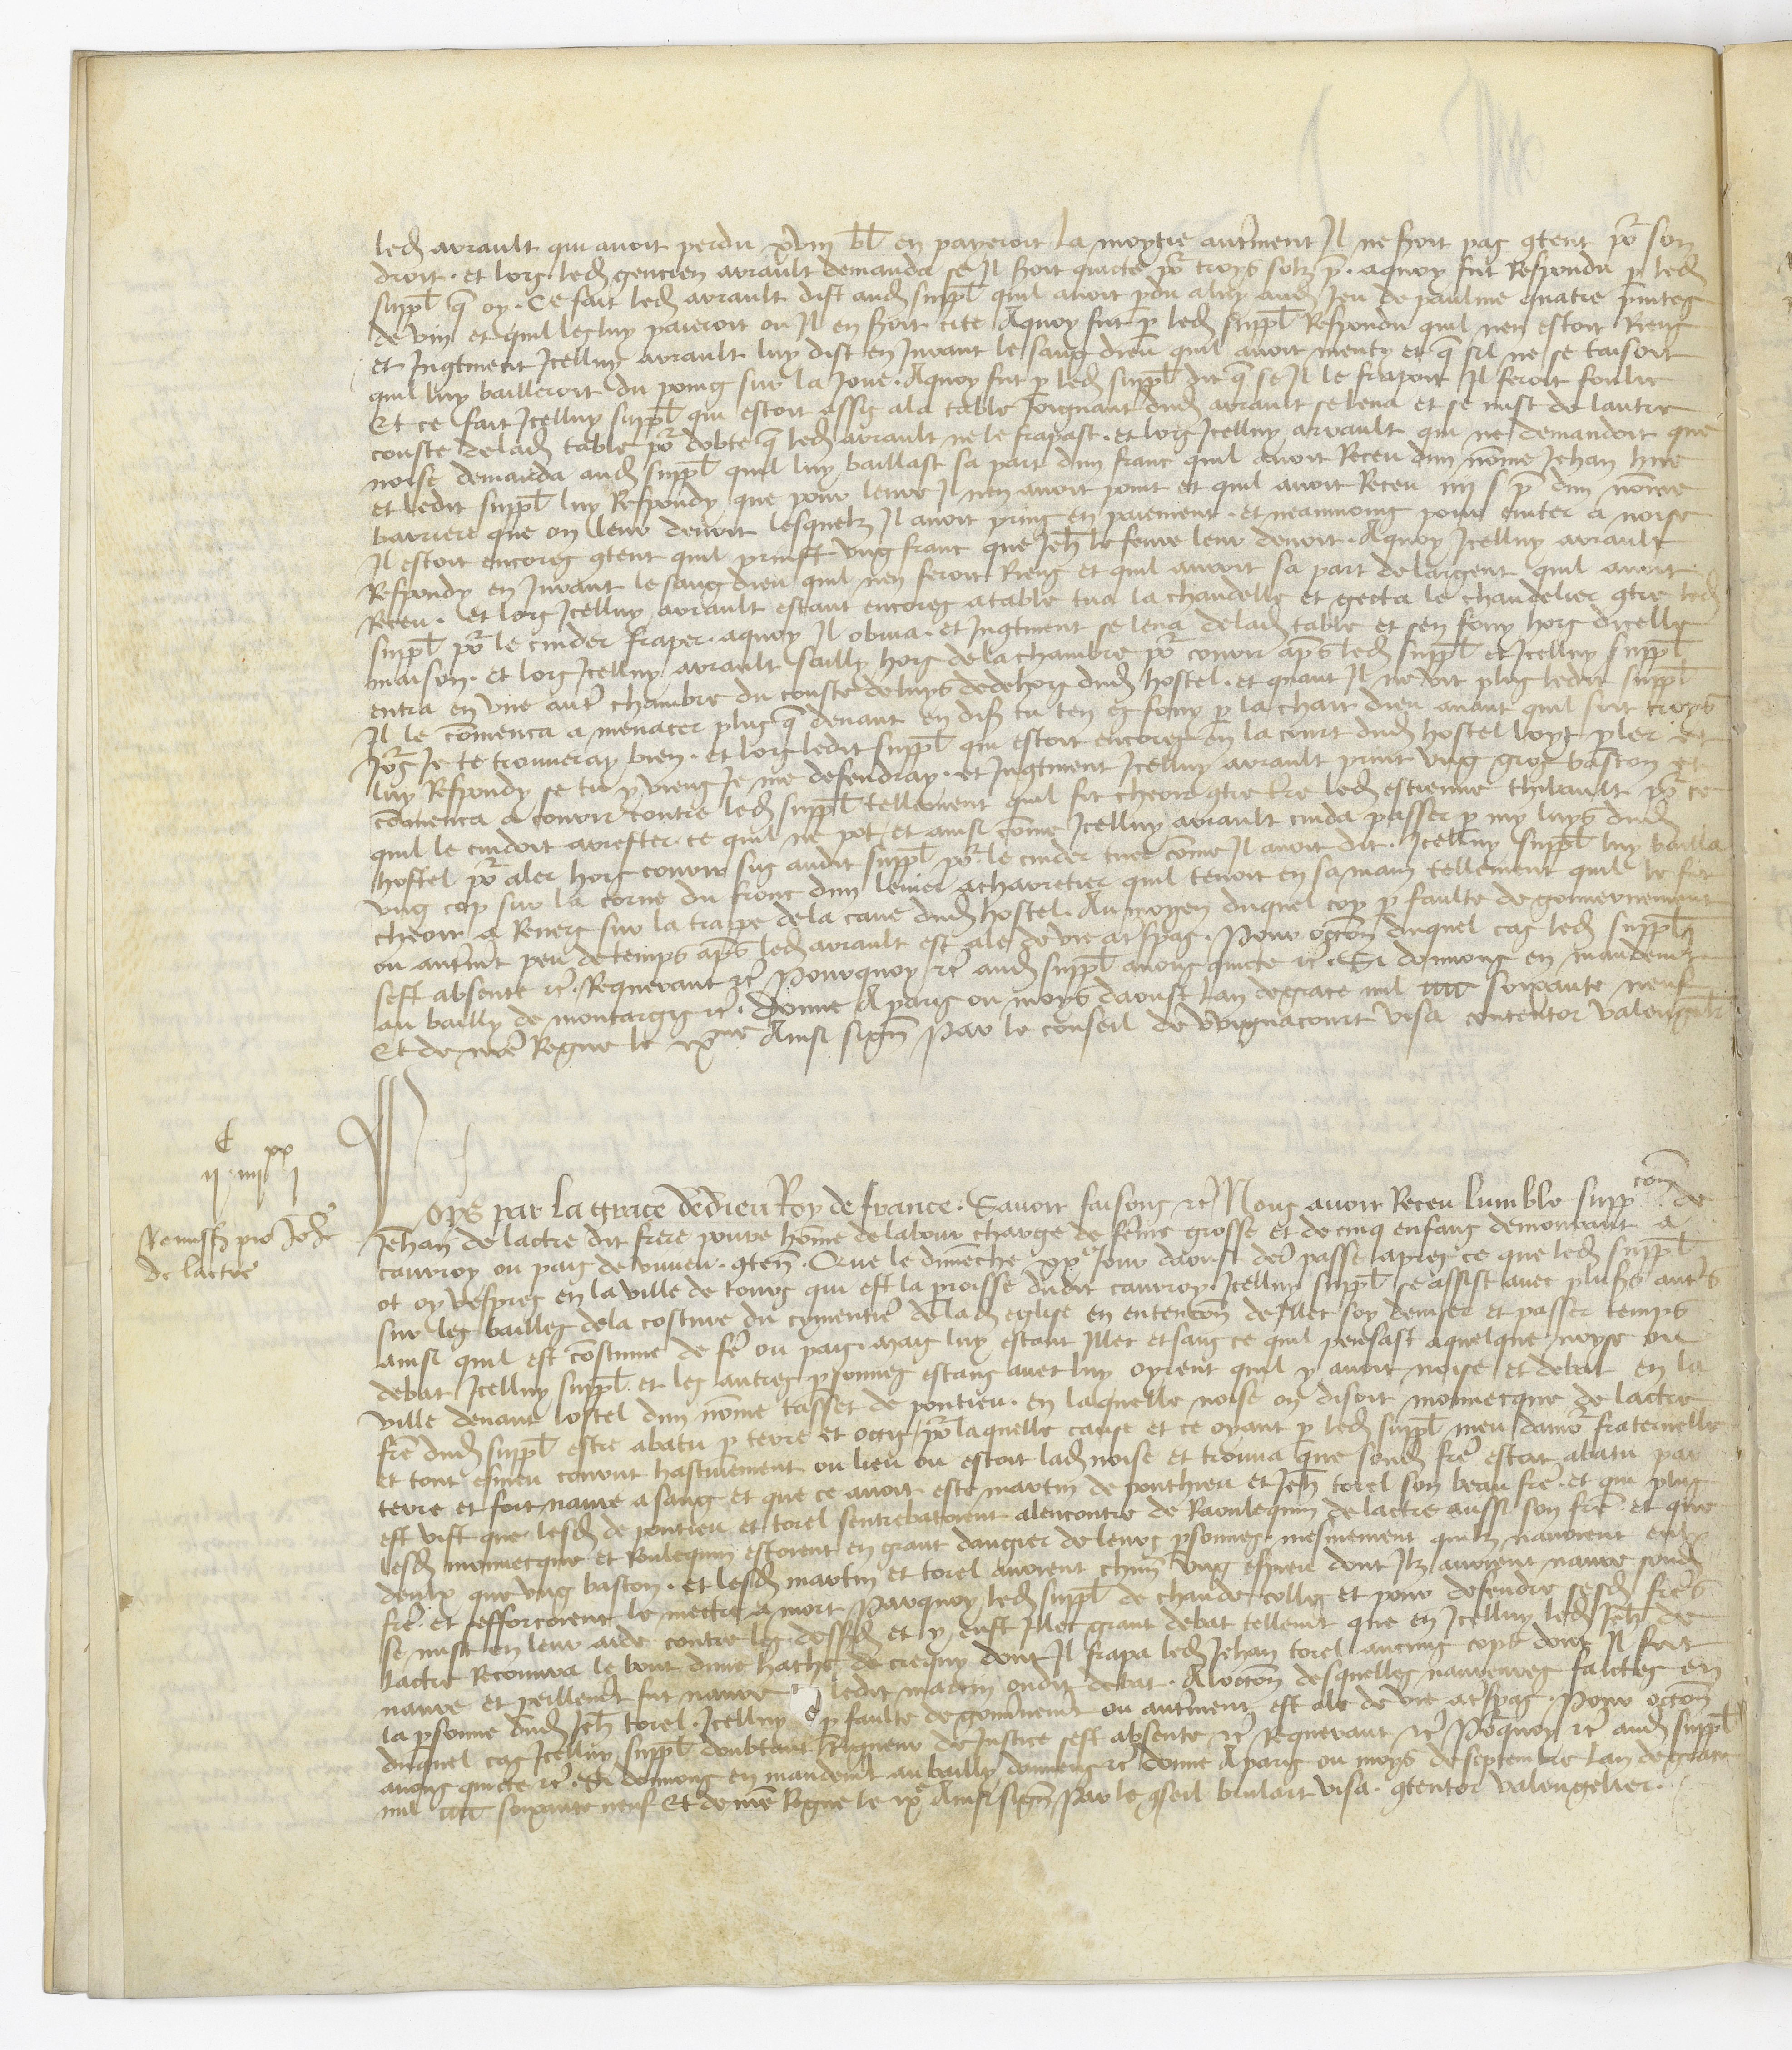 led arrault qui avoit perdu xviii bl en paieroit la moytie autrment Il ne seroit pas gtent por son
droit . et lors led gencien arrault demanda se Il seroit quicte por troys solz p . aquoy fut Respondu p led
suppl q oy . Ce fait led arrault dist aud suppl quil avoit pdu a luy aud Jeu de paulme quatre pintes
de vin et quil les luy paieroit ou Il en seroit cite Aquoy fut p led suppl Respondu quil nen estoit Riens
et Ingtment Icelluy arrault luy dist en Jurant le sang dieu quil avoit menty et q sil ne se taisoit
quil luy bailleroit du poing sur la Joue . Aquoy fut p led suppl dit q se Il le frapoit Il feroit folie
Et ce fait Icelluy suppl qui estoit assis ala table Joignant dud arrault se leva et se mist de lautre
couste de lad table por doubte q led arrault ne le frapast . et lors Icelluy arrault qui ne demandoit que
noise demanda aud suppl quil luy baillast sa part dun franc quil avoit Receu dun nome Jehan hue
et ledit suppl luy Respondy que pour leure Il nen avoit point et quil avoit Receu iiii s p dun nome
barriere que on leur devoit lesquelz Il avoit prins en paiement . et neanmoins pour eviter a noise
Il estoit encores gtent quil prinst ung franc que Jeh le fevre leur devoit . Aquoy Icelluy arrault
Respondy en Jurant le sang dieu quil nen feroit Riens et quil auroit sa part de largent quil avoit
Receu . et lors Icelluy arrault estant encores atable tua la chandelle et gecta le chandelier gtre led
suppl por le cuider fraper . aquoy Il obvia . et Ingtment se leva de lad table et sen fouy hors dicelle
maison . et lors Icelluy arrault sailly hors de la chambre por courir aps led suppl et Icelluy suppl
entra en une autr chambre du couste de luys de dehors dud hostel . et quant Il ne vit plus ledit suppl
Il le comenca a menacer plus q devant en dis tu ten es fouy p la chair dieu avant quil soit troys
Jors Je te trouveray bien . et lors ledit suppl qui estoit encores en la court dud hostel louyt pler et
luy Respondy se tu y viens Je me defendray . et Ingtment Icelluy arrault print ung gros baston et
comenca a courir contre led suppl tellement quil fit cheoir gtre tre led estienne thibault por ce
quil le cuidoit arrester . ce quil ne pot . et ainsi come Icelluy arrault cuida passer p my luys dud
hostel por aler hors courir sus audit suppl por le cuider tuer come Il avoit dit . Icelluy suppl luy bailla
ung cop sur la corne du front dun levier acharretier quil tenoit en sa main tellement quil le fit
cheoir a Revers sur la trappe de la cave dud hostel . Au moyen duquel cop p faulte de gouvernement
ou autrmt peu de temps aps led arrault est ale de vie atspas . Pour occon duquel cas led suppl
sest absente rc . Requerant rc Pourquoy rc aud suppl avons quicte rc . Si donnons en mandemt
au bailly de montargis rc . Donne A paris ou moys daoust Lan de grace mil iiiic soixante neuf
Et de nre Regne le ixme Ainsi sign Par le conseil de Wignacourt Visa contentor Valengelr
C xx
ii . iiii i
Remissio pro Joh
de lactre
Loys par La grace de dieu Roy de france . Savoir faisons rc Nous avoir Receu Lumble suppcon de
Jehan de lactre dit frere povre home de labour charge de feme grosse et de cinq enfans demourant a
cauvroy ou pais de vimeu . gten . Que le dimenche xxe Jour daoust der passe apres ce que led suppl
ot oy vespres en la ville de tours qui est la proisse dudit cauvroy . Icelluy suppl se assist avec plusrs autrs
sur les bailles de la costure du cymentier de lad eglise en entencon de Illec soy deviser et passer temps
ainsi quil est coustume de fe ou pais . mais luy estant Illec et sans ce quil pensast aquelque noyse ou
debat Icelluy suppl et les autres psonnes estans avec luy oyrent quil y avoit noise et debat en la
ville devant lostel dun nome tasset de pontieu . en laquelle noise on disoit monnecque de lactre
fre dud suppl estre abatu p terre et occis / por laquelle cause et ce oyant p led suppl meu damor fraternelle
et tout esmeu courut hastivement ou lieu ou estoit lad noise et trouva que sond fre estoit abatu par
terre et fort navre a sang et que ce avoit este martin de ponthieu et Jeh torel son beau fre . et qui plus
est vist que lesd de pontieu et torel sentrebatoient alencontre de Raoulequin de lactre aussi son fre et que
lesd monnecque et Roulequin estoient en grant dangier de leurs psonnes . mesmement quilz navoient entre
deulx que ung baston . et lesd martin et torel avoient chun ung espieu dont Ilz avoient navre sond
fre . et sefforcoient le mectre a mort Parquoy led suppl de chaude colle et pour defendre sesd fres
se mist en leur aide contre les dessusd et y eust Illec grant debat tellemt que en Icelluy led Jeh de
lactre Recouvra le bout dune hache de crequy dont Il frapa led Jehan torel aucuns cops dont Il fut
navre et peillemt fut navre ledit martin oudit debat . A loccon desquelles navreures faictes en
la psonne dud Jeh torel . Icelluy p faulte de gouvnemt ou autrment est ale de vie atspas . Pour occon
duquel cas Icelluy suppl doubtant Rigueur de Justice sest absente rc Requerant rc Pourquoy rc aud suppl
avons quicte rc . Si donnons en mandemt au bailly damiens rc Donne A paris ou moys de septembre Lan de grace
mil iiiic soixante neuf Et de nre Regne le ixe Ainsi sign Par le gseil brulart Visa . gtentor Valengelier .